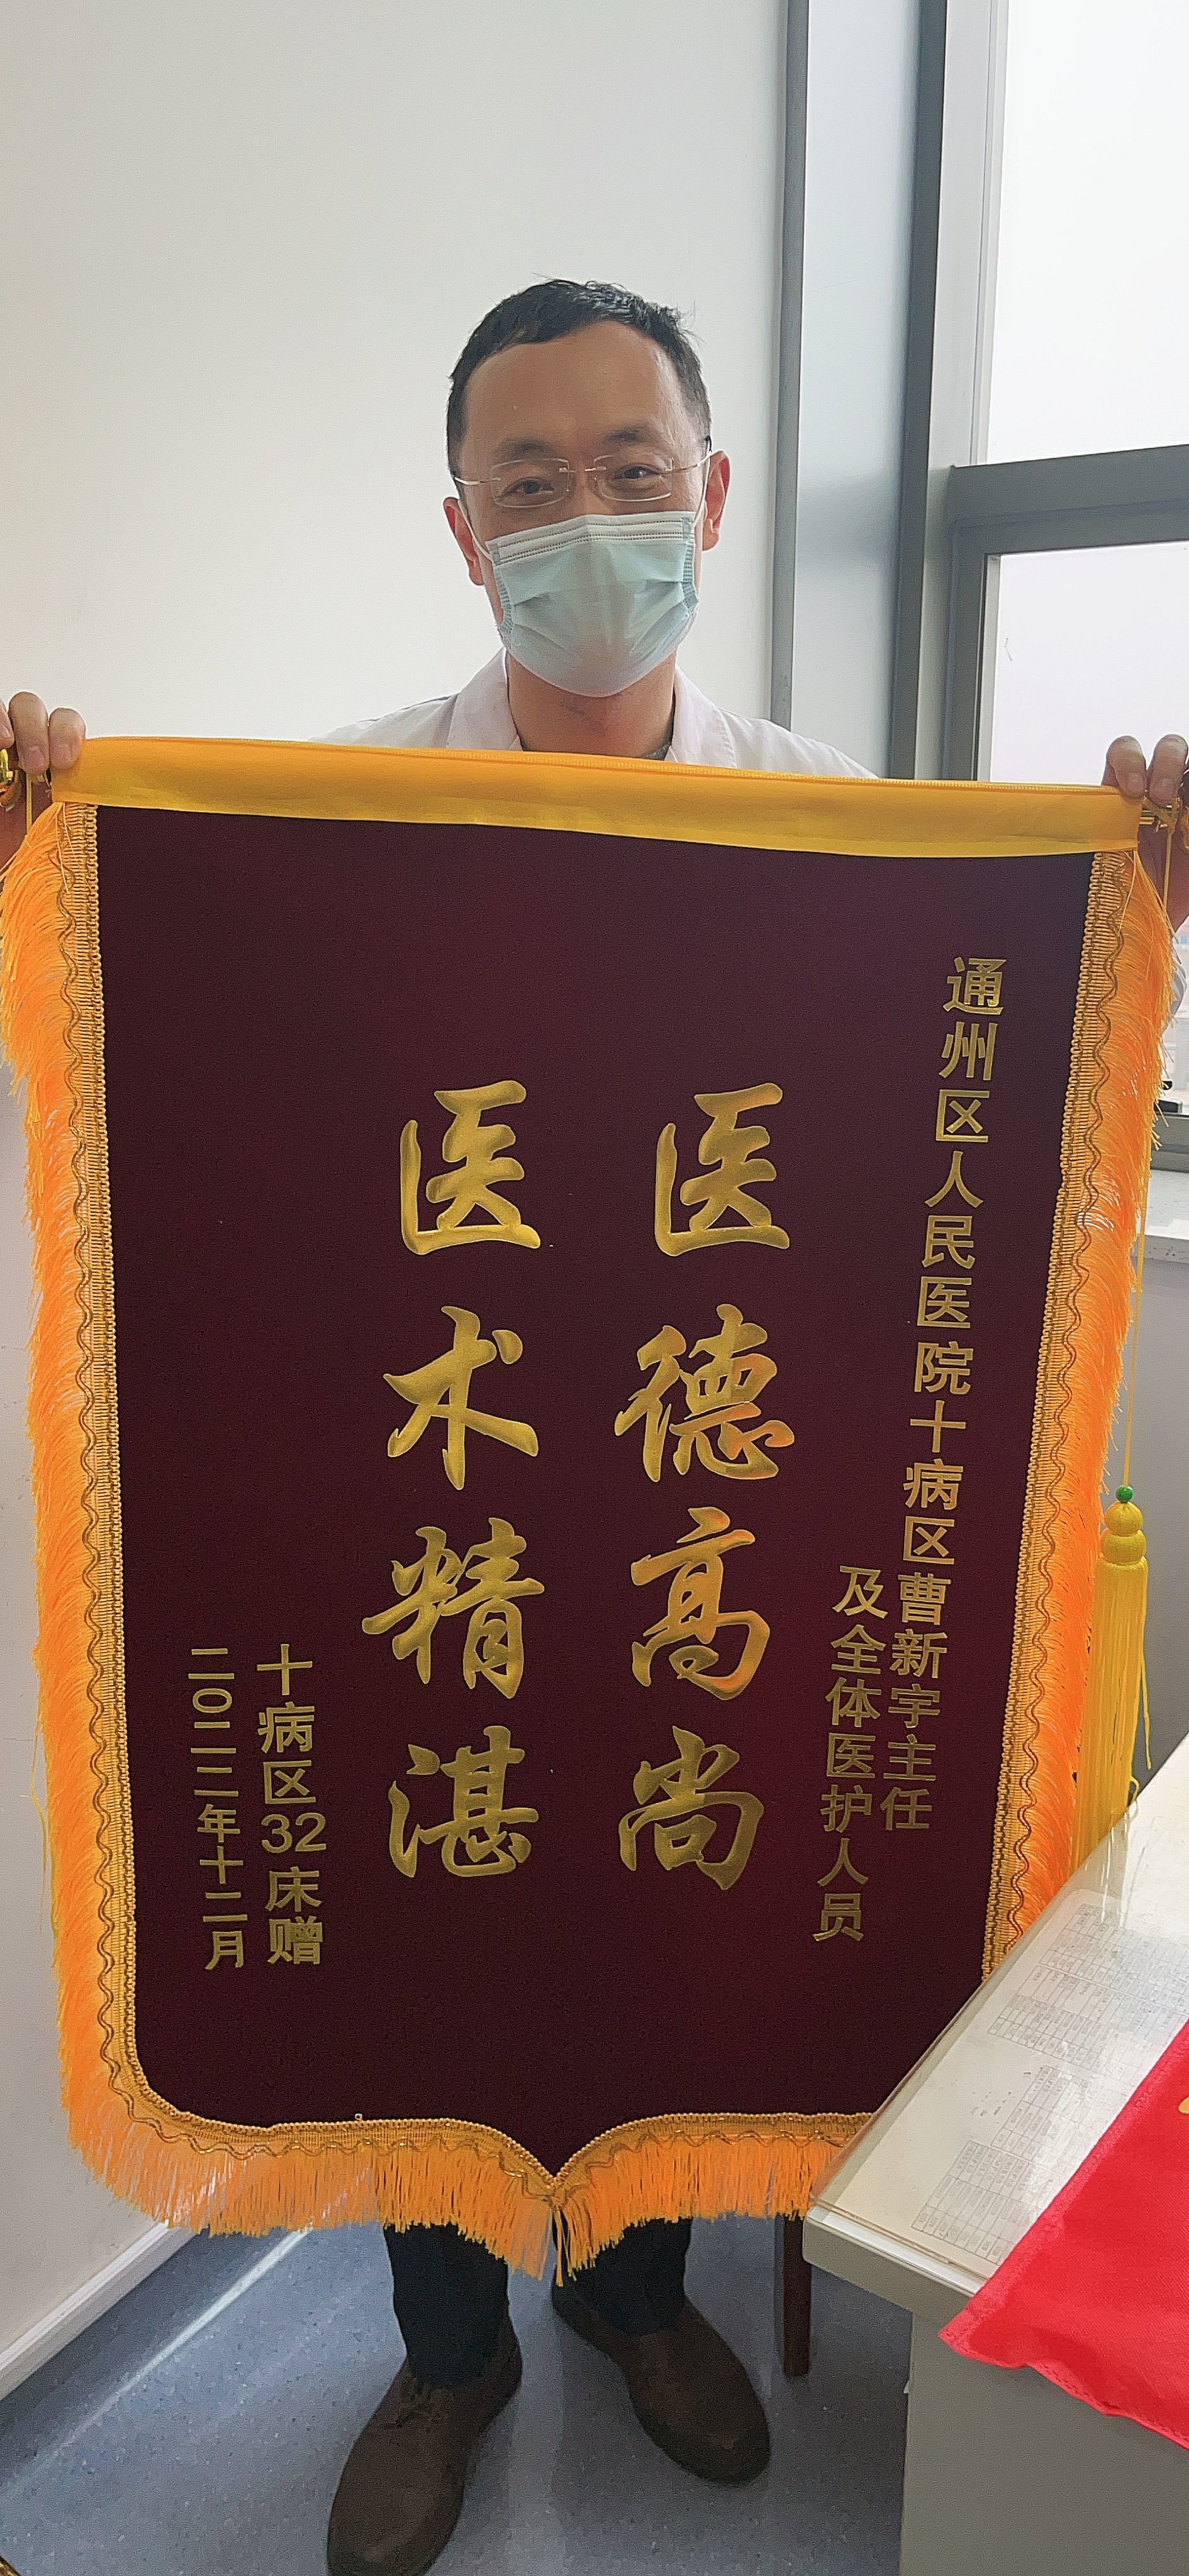 通州区人民医院十病区曹新宇主任
及全体医护人员
医德高尚
医术精湛
十病区32床赠
二〇二二年十二月